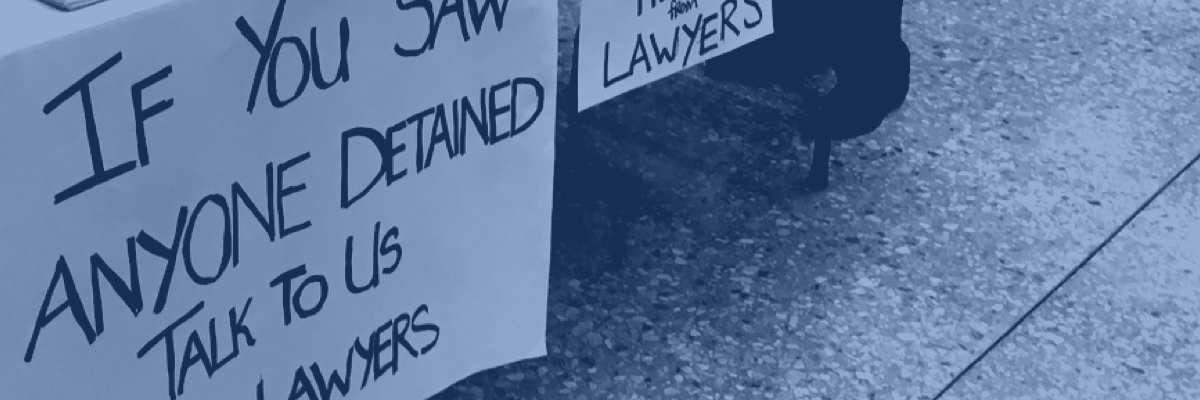 IF YOU SAW
ANYONE DETAINED
TALK TO US
LAWYERS
from
LAWYERS